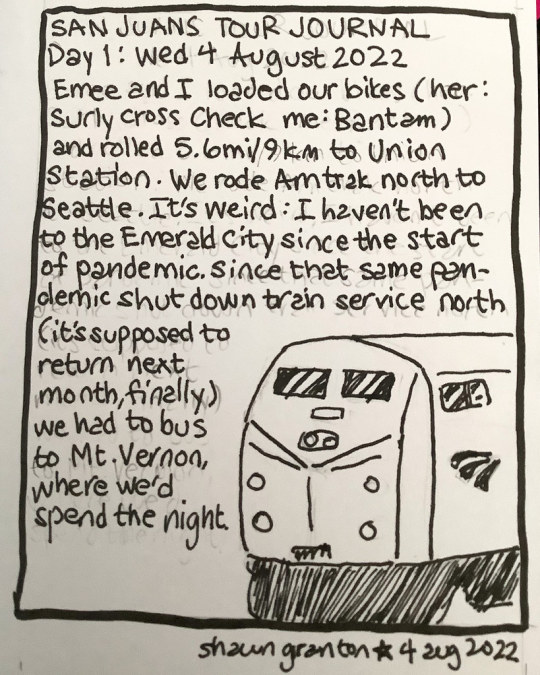 SAN JUANS TOUR JOURNAL
Day 1: Wed 4 August 2022
Emee and I loaded our bikes (her:
Surly cross Check me: Bantam)
and rolled 5.6mi/9km to Union
Station. We rode Amtrak north to
Seattle. It's weird: I haven't been
to the Emerald City since the start
of pandemic. Since that same pan-
demic shut down train service north
(it's supposed to
return next
month, finally)
we had to bus
to Mt. Vernon,
where we'd
spend the night.
shawn granton ★ 4 aug 2022